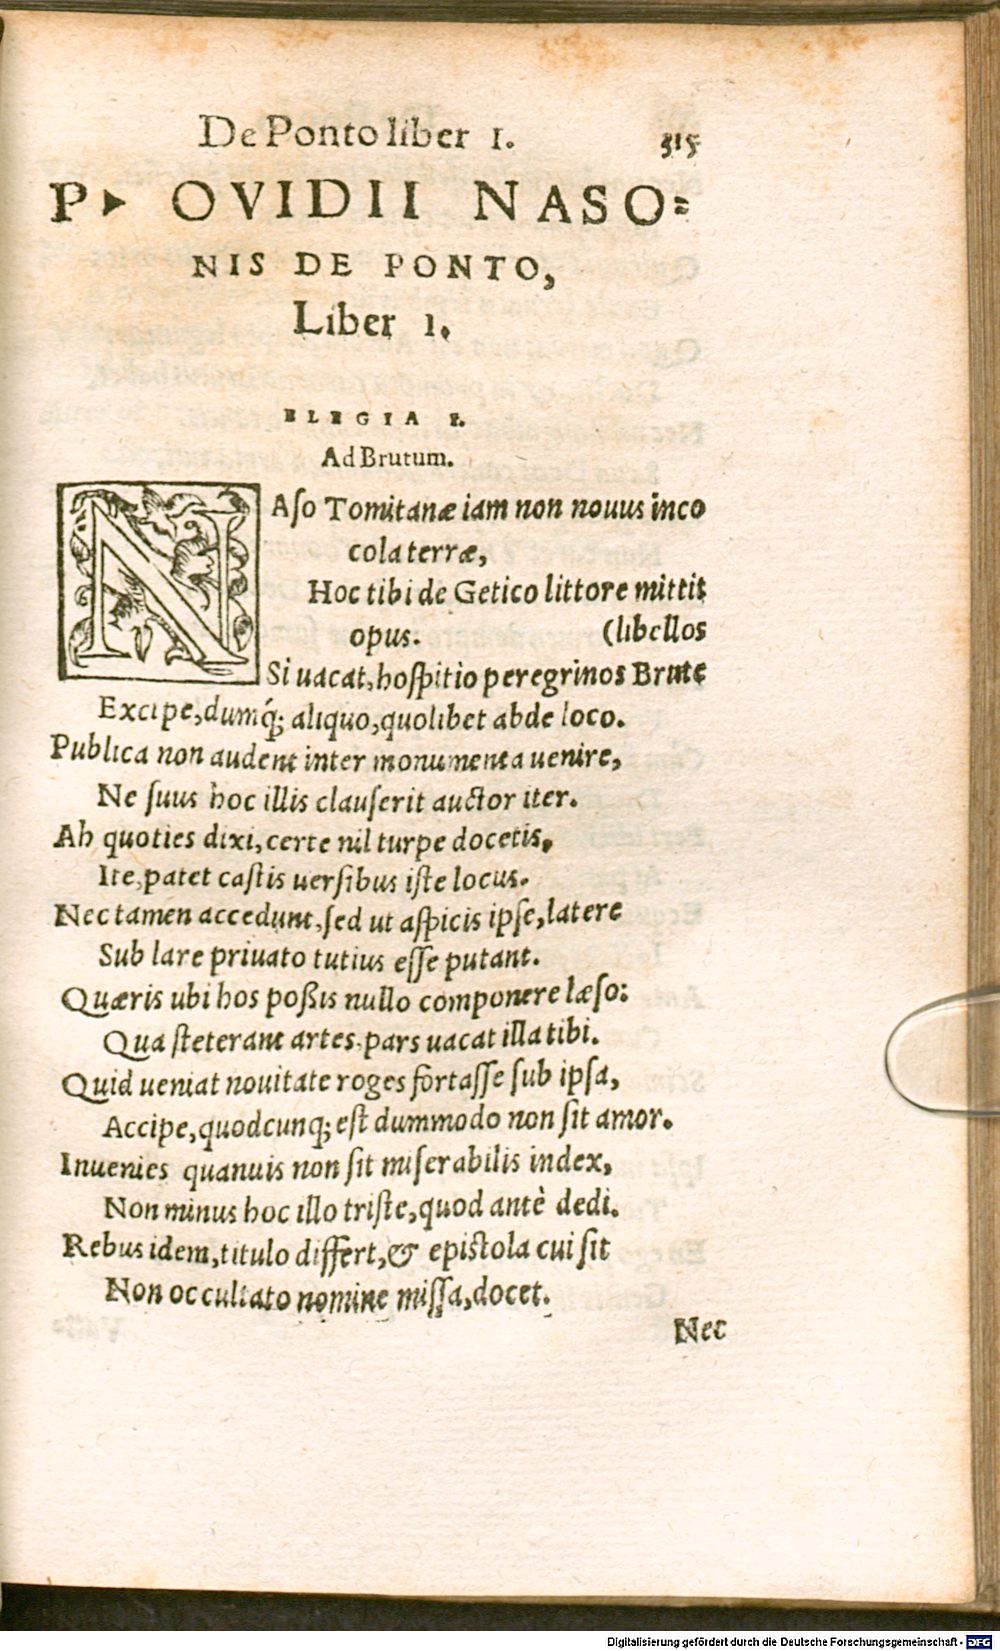 De Ponto liber 1. 315
P. OVIDII NASO=
NIS DE PONTO,
Liber 1.
ELEGIA I.
Ad Brutum.
NAſo Tomitanæ iam non nouus inco
cola terræ,
Hoc tibi de Getico littore mittit
opus. (libellos
Si uacat, hoſpitio peregrinos Brute
Excipe, dumq́; aliquo, quolibet abde loco.
Publica non audent inter monumenta uenire,
Ne ſuus hoc illis clauſerit auctor iter.
Ah quoties dixi, certe nil turpe docetis,
Ite, patet caſtis uerſibus iſte locus.
Nec tamen accedunt, ſed ut aſpicis ipſe, latere
Sub lare priuato tutius eſſe putant.
Quæris ubi hos poßis nullo componere læſo:
Qua ſteterant artes, pars uacat illa tibi.
Quid ueniat nouitate roges fortaſſe ſub ipſa,
Accipe, quodcunq; eſt dummodo non ſit amor.
Inuenies quanuis non ſit miſerabilis index,
Non minus hoc illo triſte, quod antè dedi.
Rebus idem, titulo differt, & epiſtola cui ſit
Non occultato nomine miſſa, docet.
Nec
Digitalisierung gefördert durch die Deutsche Forschungsgemeinschaft - DFG